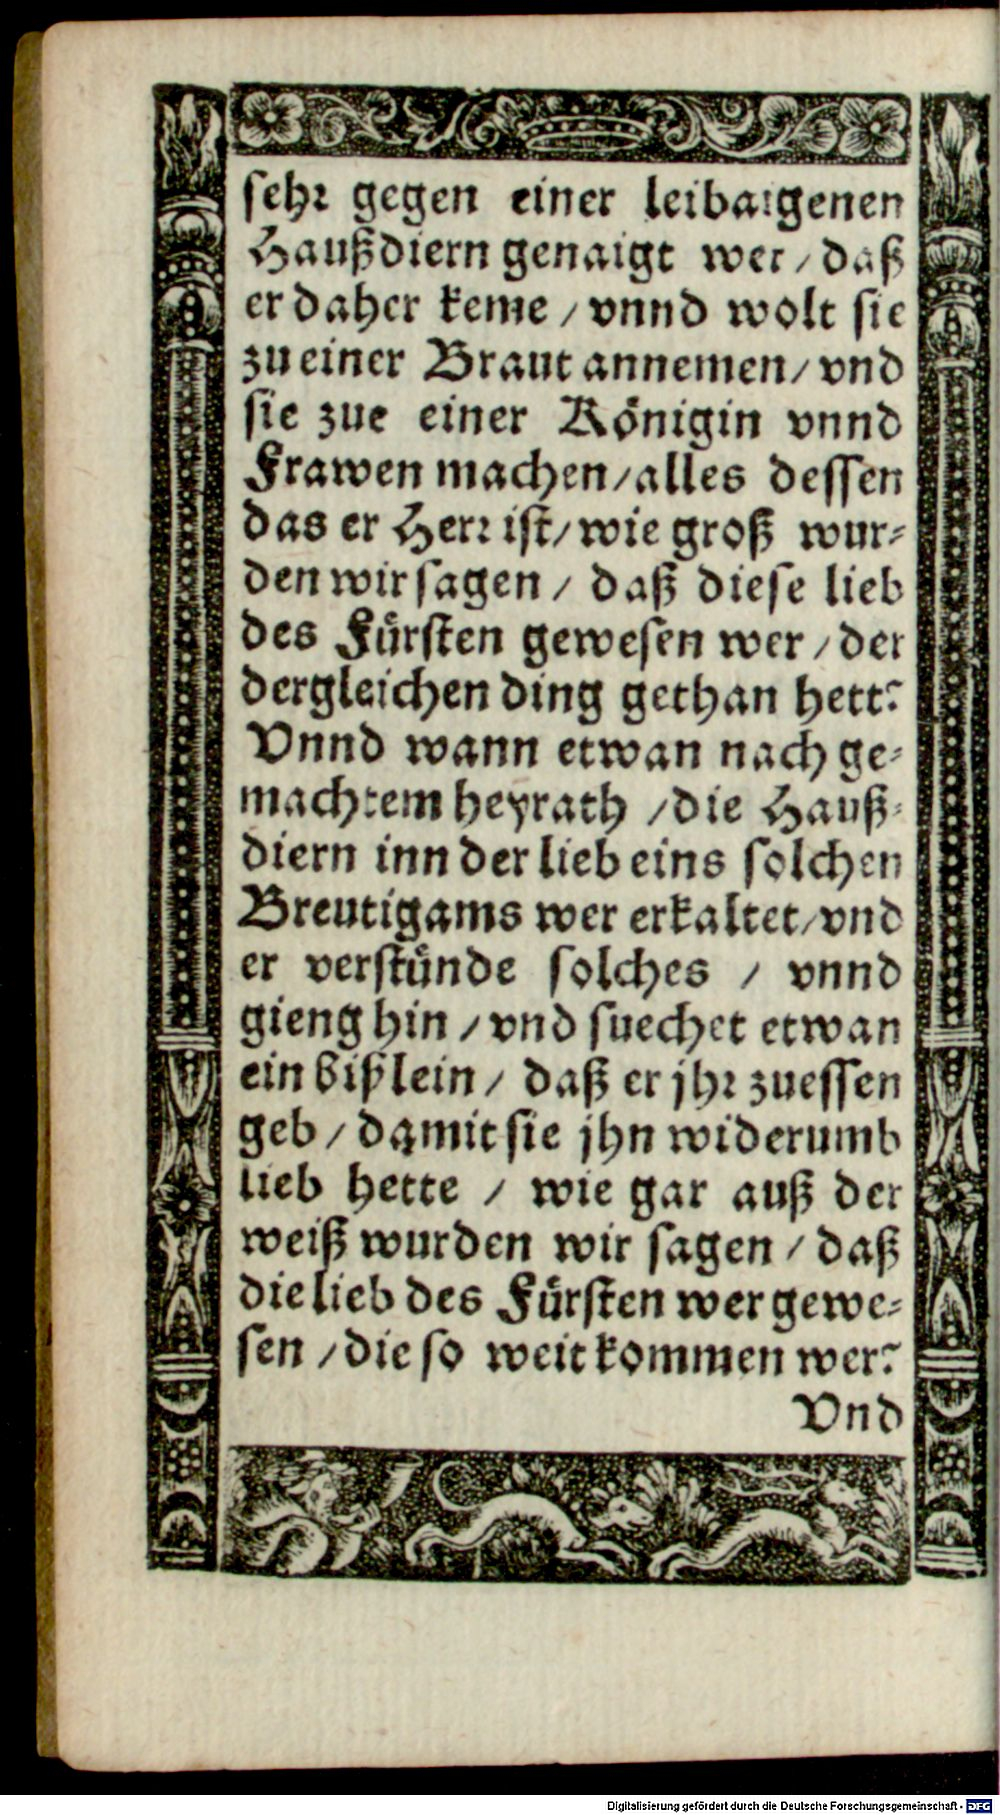 sehr gegen einer leibaigenen
Haußdiern genaigt wer / daß
er daher keme / vnnd wolt sie
zu einer Braut annemen / vnd
sie zue einer Königin vnnd
Frawen machen / alles dessen
das er Herr ist / wie groß wur-
den wir sagen / daß diese lieb
des Fürsten gewesen wer / der
dergleichen ding gethan hett?
Vnnd wann etwan nach ge-
machtem heyrath / die Hauß-
diern inn der lieb eins solchen
Breutigams wer erkaltet / vnd
er verstünde solches / vnnd
gieng hin / vnd suechet etwan
ein bißlein / daß er jhr zuessen
geb / damit sie jhn widerumb
lieb hette / wie gar auß der
weiß wurden wir sagen / daß
die lieb des Fürsten wer gewe-
sen / die so weit kommen wer?
Vnd
Digitalisierung gefördert durch die Deutsche Forschungsgemeinschaft - DFG